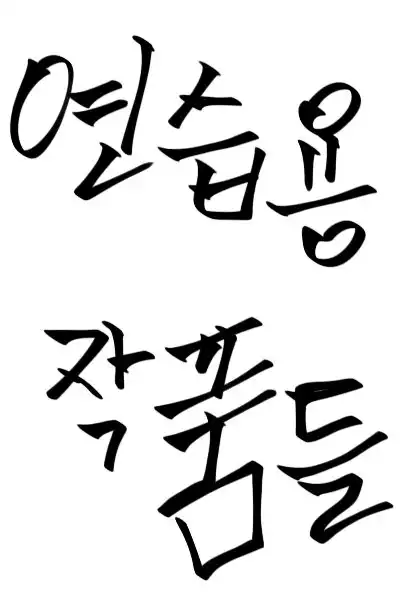 연습용
작품들